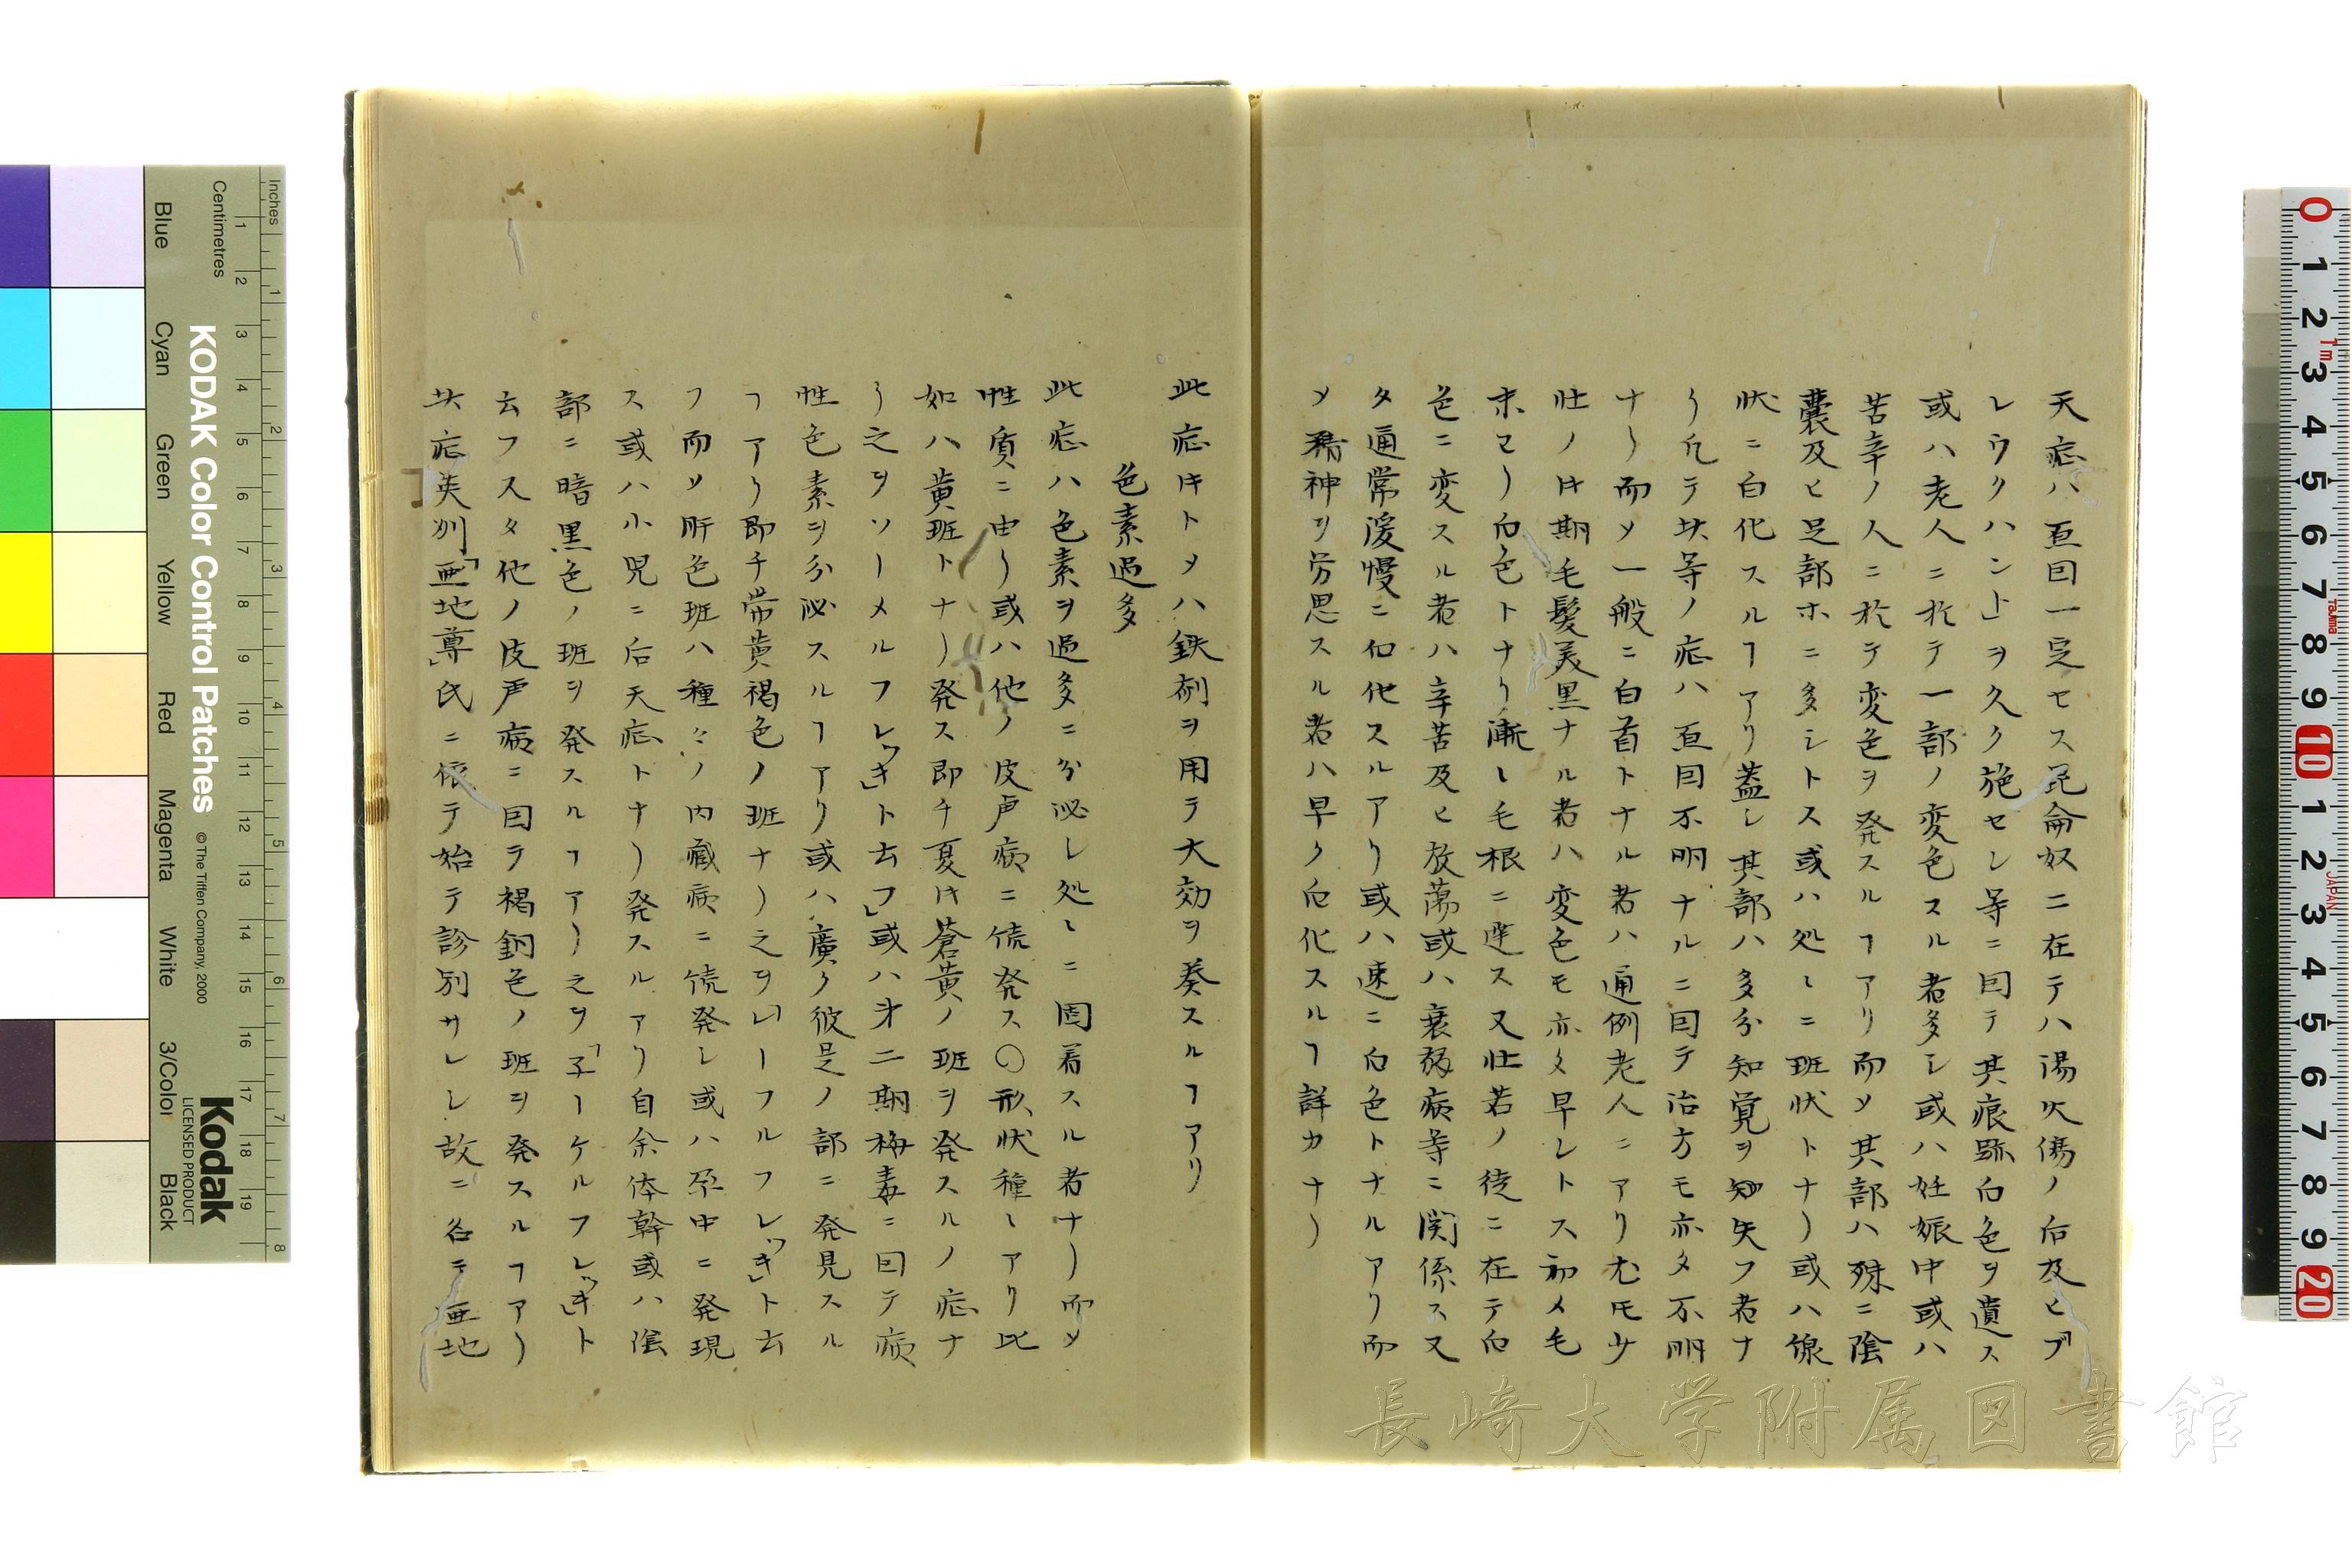 天症ハ亘因一定セス昆侖奴ニ在テハ湯火傷ノ后及ヒブ
レウクハント」ヲ久ク施セシ等ニ因テ其痕跡白色ヲ遺ス
或ハ老人ニ於テ一部ノ変色スル者多シ或ハ妊娠中或ハ
苦辛ノ人ニ於テ変色ヲ発スルヿアリ而メ其部ハ殊ニ陰
嚢及ヒ足部ホニ多シトス或ハ処〻ニ斑状トナリ或ハ線
状ニ白化スルヿアリ蓋シ其部ハ多分知覚ヲ失フ者ナ
リ凡テ此等ノ症ハ亘因不明ナルニ因テ治方モ亦タ不明
ナリ而メ一般ニ白首トナル者ハ通例老人ニアリ尤モ少
壮ノ時期毛髪美黒ナル者ハ変色モ亦タ早シトス初メ毛
末ヨリ白色トナリ漸〻毛根ニ達ス又壮若ノ徒ニ在テ白
色ニ変スル者ハ辛苦及ヒ放蕩或ハ衰弱病等ニ関係ス又
タ通常緩慢ニ白化スルアリ或ハ速ニ白色トナルアリ而
メ精神ヲ労思スル者ハ早ク白化スルヿ詳カナリ
此症ヰトメハ鉄剤ヲ用テ大効ヲ奏スルヿアリ
色素過多
此症ハ色素ヲ過多ニ分泌シ処〻ニ固着スル者ナリ而メ
性質ニ由リ或ハ他ノ皮膚病ニ続発ス〇形状種〻アリ此
如ハ黄斑トナリ発ス即チ夏時蒼黄ノ斑ヲ発スルノ症ナ
リ之ヲソーメルフレッキ」ト云フ」或ハ第二期梅毒ニ因テ病
性色素ヲ分泌スルヿアリ或ハ廣ク彼是ノ部ニ発見スル
ヿアリ即チ帯黄褐色ノ斑ナリ之ヲレーフルフレッキ」ト云
フ而ソ肝色斑ハ種々ノ内蔵病ニ続発シ或ハ孕中ニ発現
ス或ハ小児ニ后天症トナリ発スルアリ自余体幹或ハ陰
部ニ暗黒色ノ斑ヲ発スルヿアリ之ヲ「子ーケルフレッキ」ト
云フスタ他ノ皮膚病ニ因テ褐銅色ノ斑ヲ発スルヿアリ
此症英州「亜地尊」氏ニ依テ始テ診別サレシ故ニ名テ亜地
長崎大学附属図書館
Inches
Centimetres
KODAK Color Control Patches
© The Tiffen Company, 2000
Kodak
LICENSED PRODUCT
Blue
Cyan
Green
Yellow
Red
Magenta
White
3/Color
Black
JAPAN